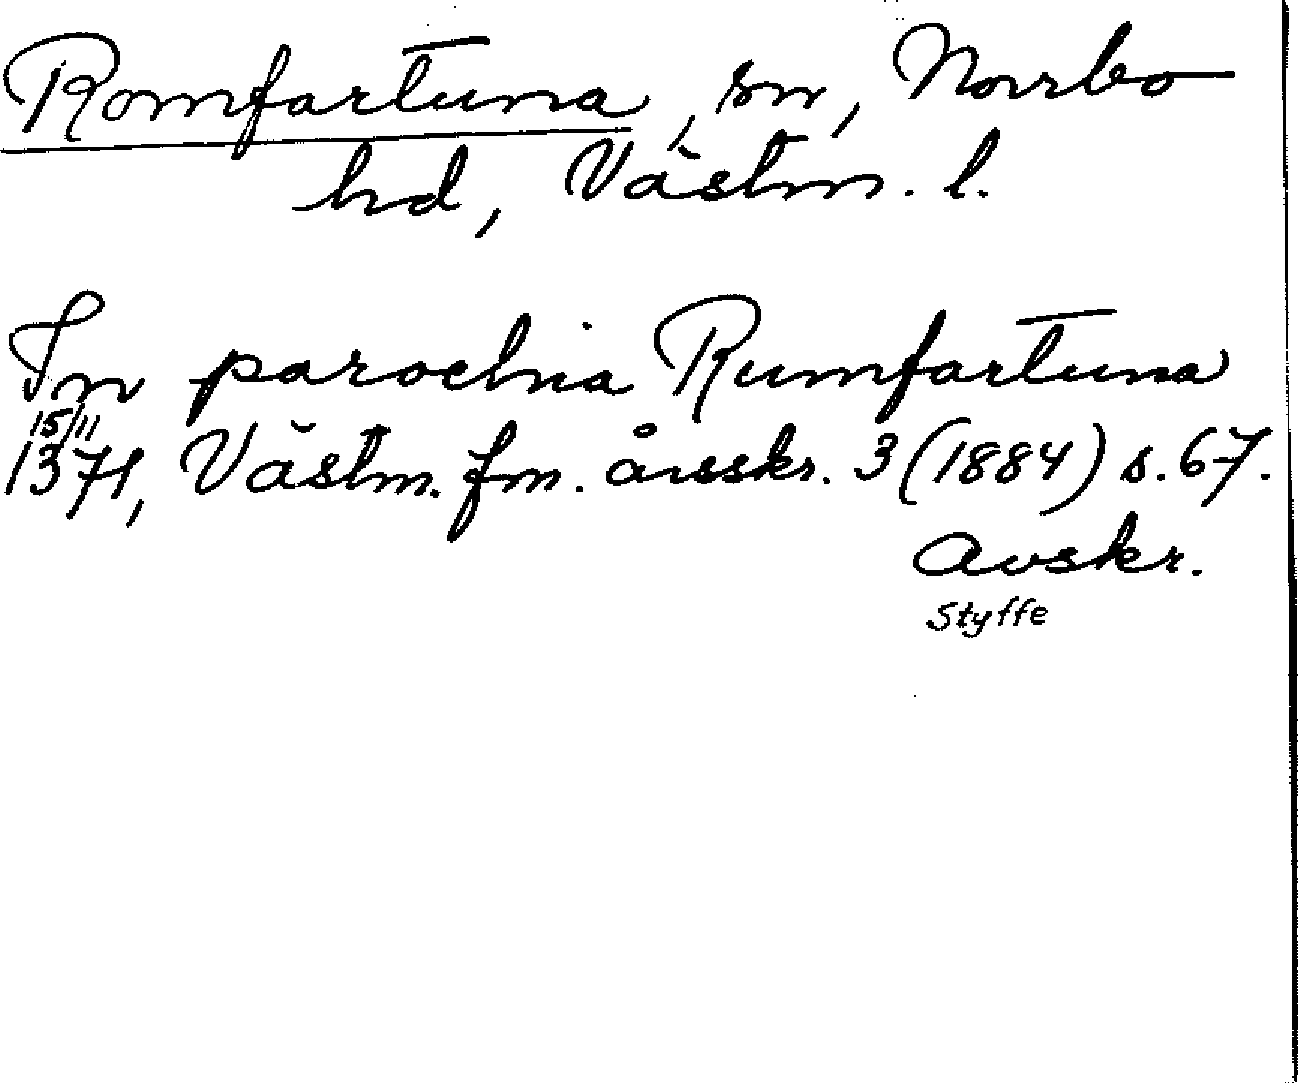 Romfartuna, sn, Norrbo
hd, Västm. l.
In parochia Rumfartuna
15/11
1371, Västm. fm. årsskr. 3 (1884) s. 67.
Avskr.
Styffe